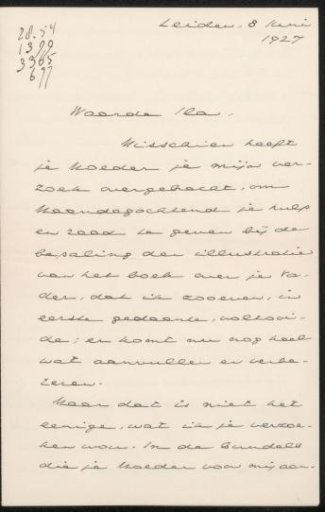 28.54
13
Leiden, 8 Juni
1927
Waarde Ila,
Misschien heeft
je Moeder je mijn ver-
zoek overgebracht, om
Maandagochtend je hulp
en raad te geven bij de
bepaling der illustratie
van het boek over je Va-
der, dat ik zooeven, in
eerste gedaante, voltooi-
de; er komt nu nog heel
wat aanvullen en verbe-
teren.
Maar dat is niet het
eenige, wat ik je verzoe-
ken wou. In de bundels
die je Moeder voor mij